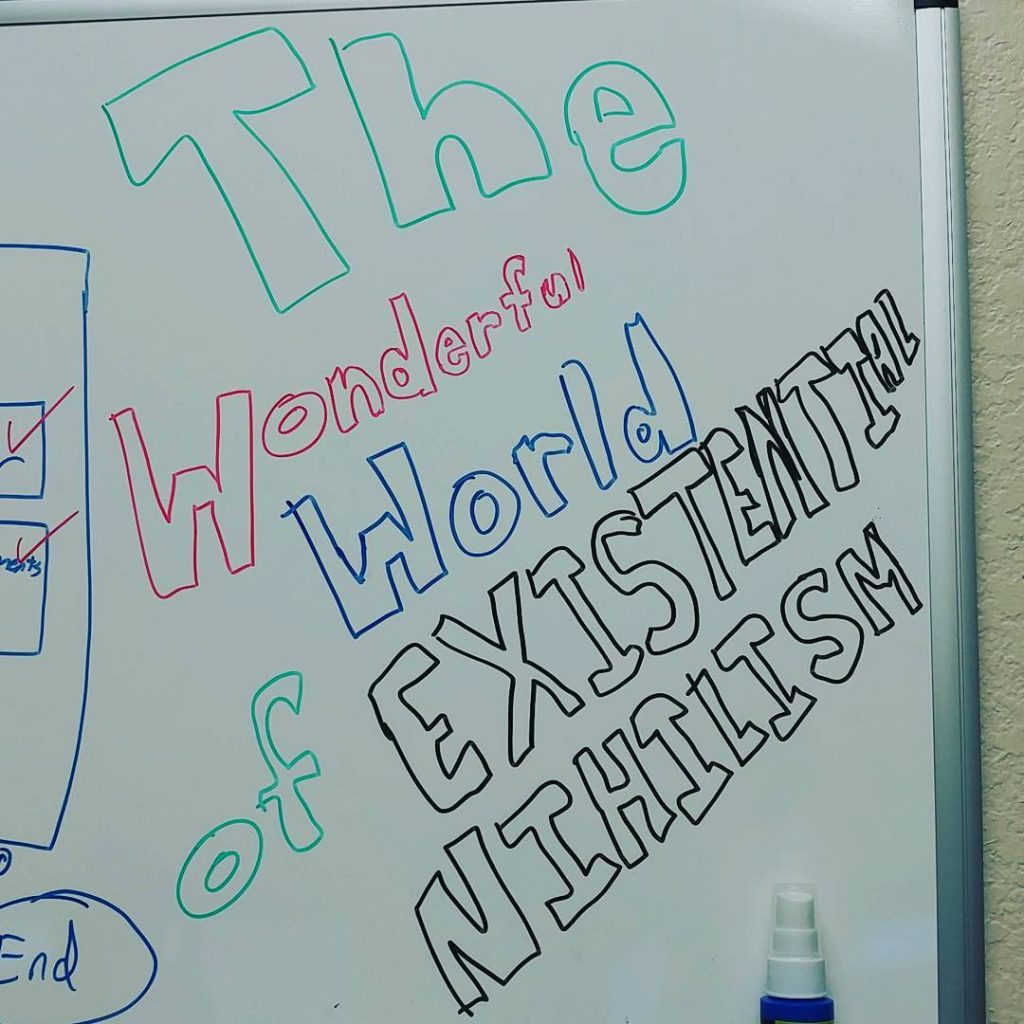 The
Wonderful
World
of
EXISTENTIAL
NIHILISM
End